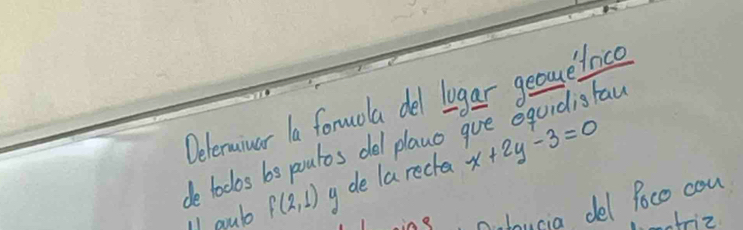 Determinar la formula del lugar geométrico
de todos los puntos del plano que equidistan
punto P(2,1) y de la recta x+2y-3=0
del foco con